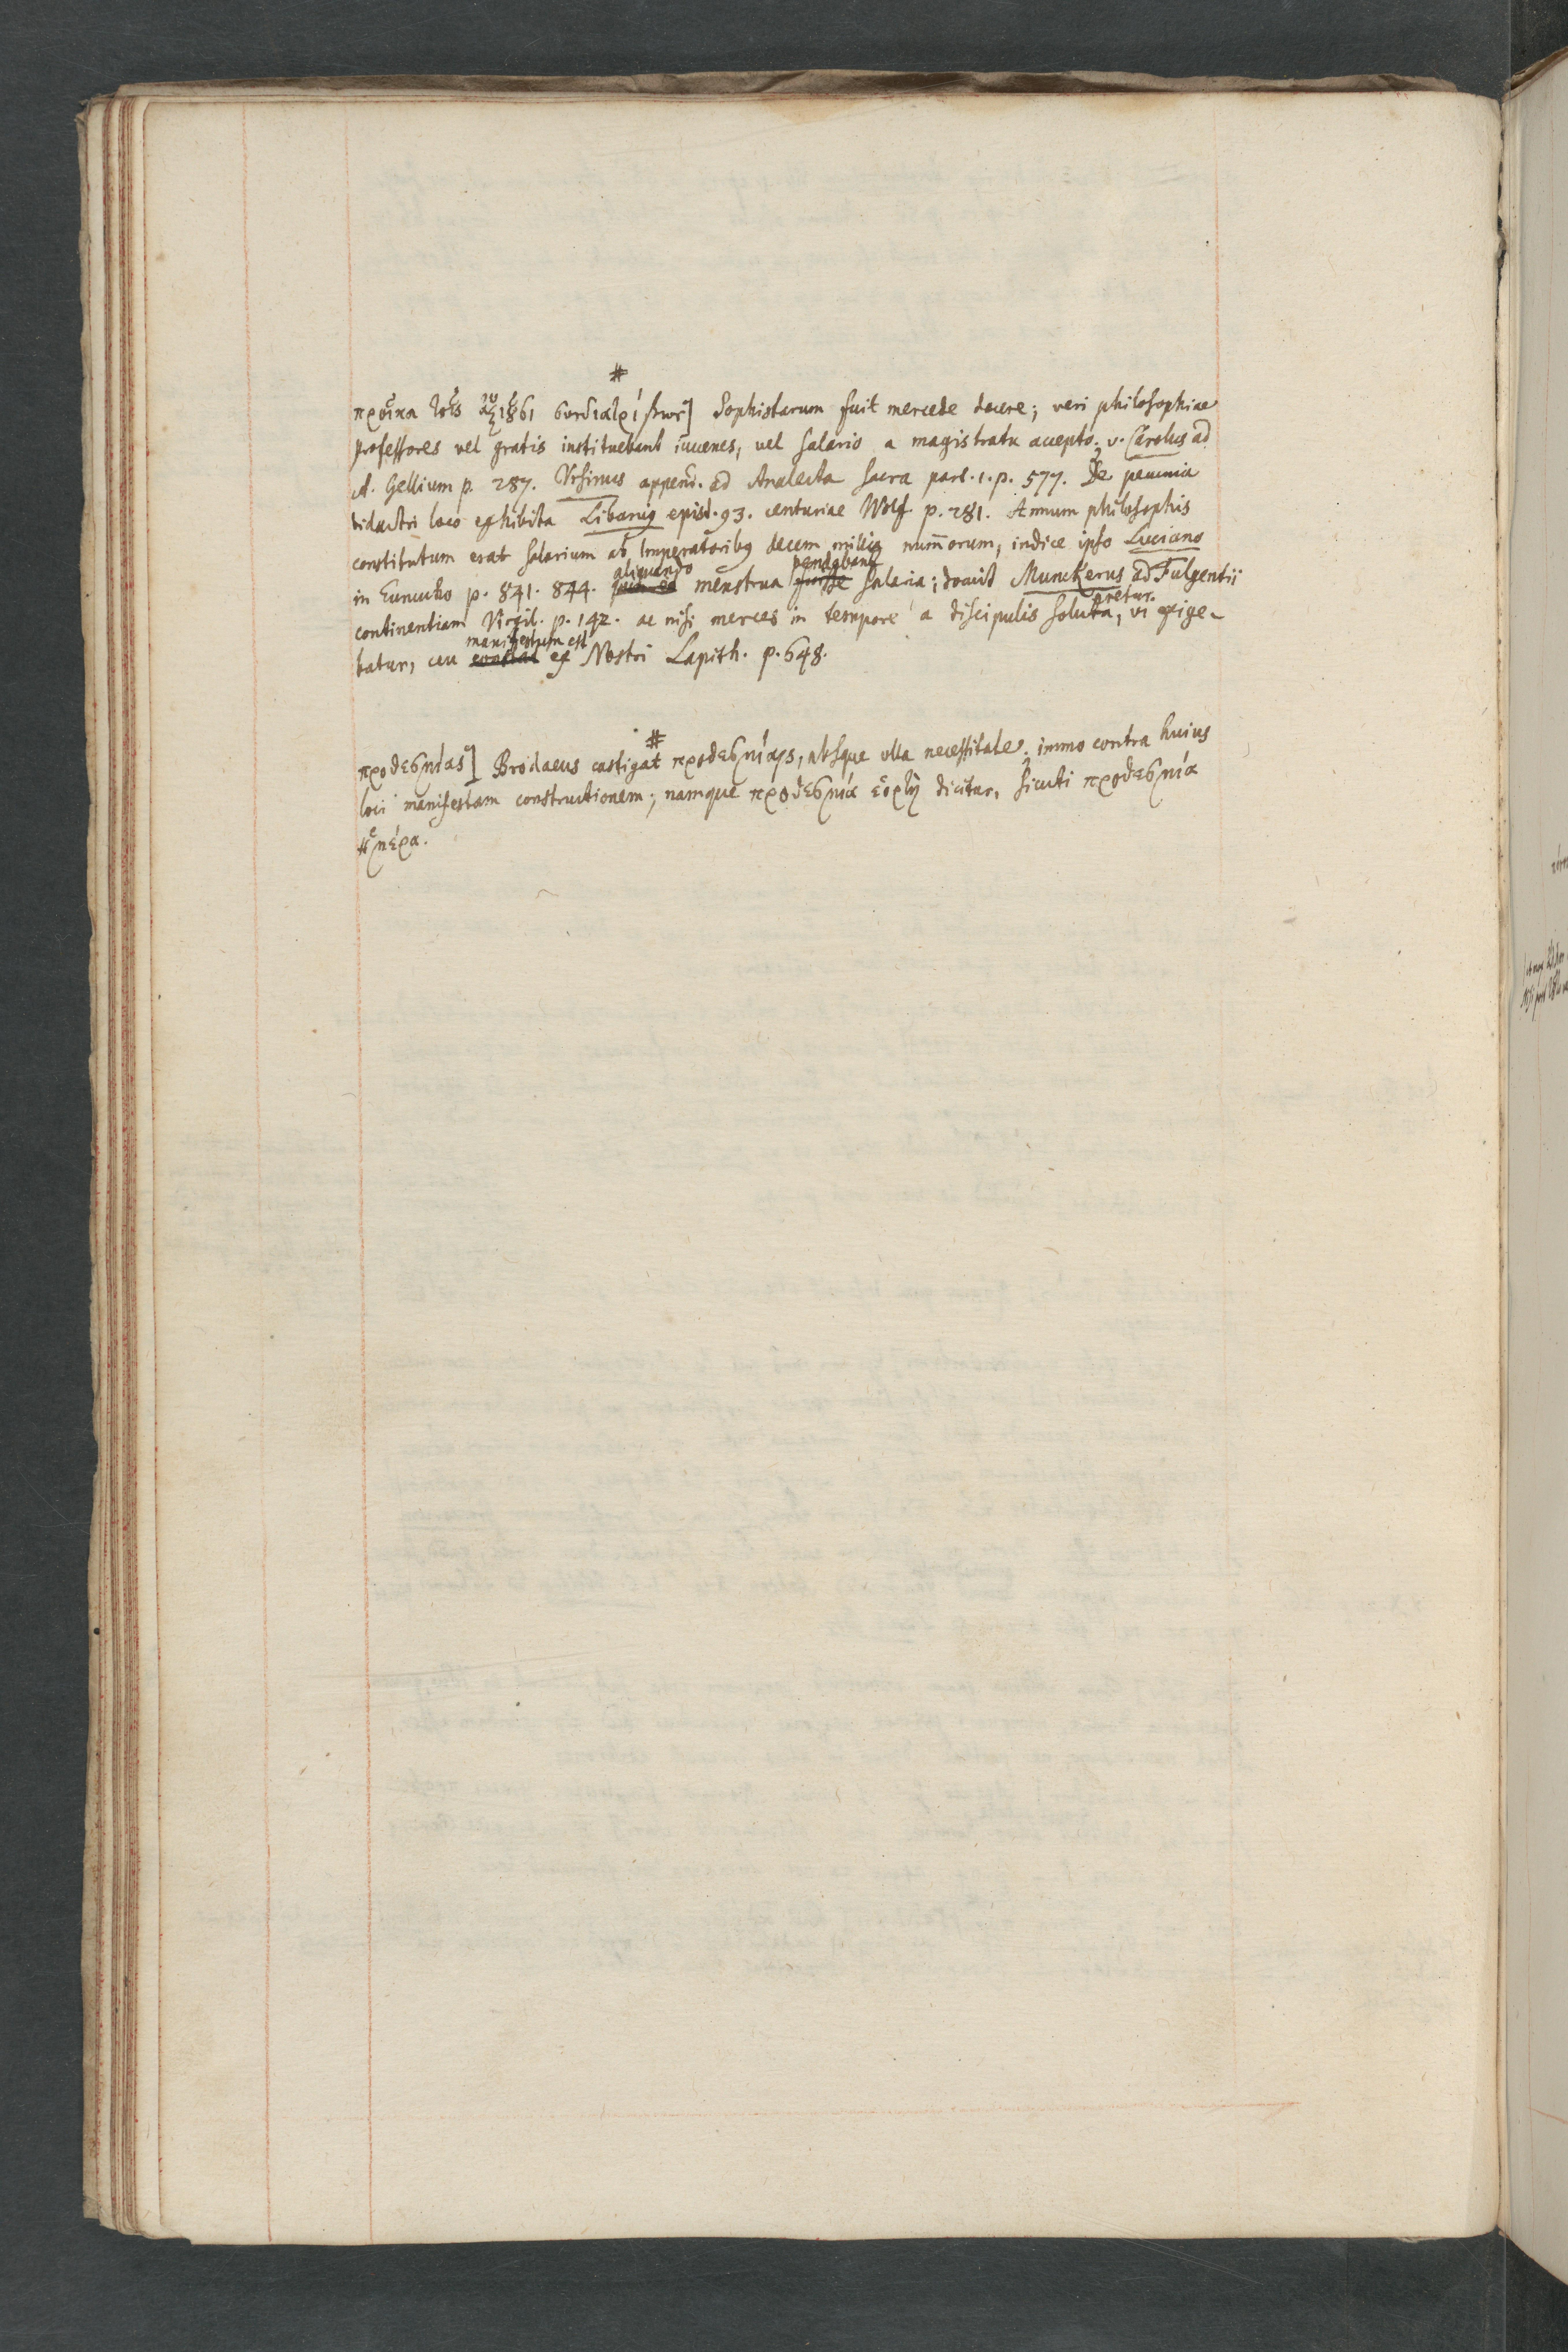 #
προῖκα τοῖς ἀξιοῦσι συνδιατρίβων] Sophistarum fuit mercede docere; veri philosophiae
professores vel gratis instituebant iuvenes, vel salario a magistratu accepto; v. Carolus ad
A. Gellium p. 287. Ursinus append. ad Analecta sacra part. 1. p. 577. De pecunia
didactri loco exhibita Libanius epist. 93. centuriae Wolf. p. 281. Annuum philosophis
constitutum erat salarium ab Imperatoribus decem millia nummorum, indice ipso Luciano
in Eunucho p. 841. 844. aliquando menstrua pendebant salaria; docuit Munckerus ad Fulgentii
continentiam Virgil. p. 142. ac nisi merces in tempore a discipulis solveretur, vi exige-
batur, ceu manifestum est ex Nostri Lapith. p. 648.
#
προθεσμίας] Brodaeus castigat προθεσμίαις, absque ulla necessitate; immo contra huius
loci manifestam constructionem; namque προθεσμία ἑορτὴ dicitur, sicuti προθεσμία
ἡμέρα.